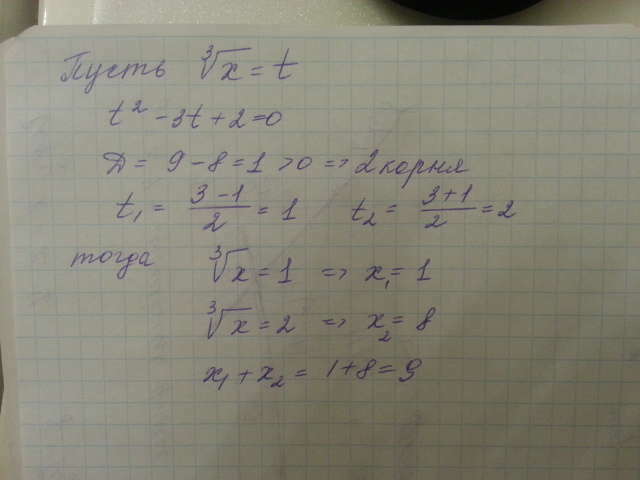 Пусть ∛x = t
t² - 3t + 2 = 0
Д = 9 - 8 = 1 > 0 => 2 корня
t₁ = (3 - 1)/2 = 1 t₂ = (3 + 1)/2 = 2
тогда ∛x = 1 => x₁ = 1
∛x = 2 => x₂ = 8
x₁ + x₂ = 1 + 8 = 9